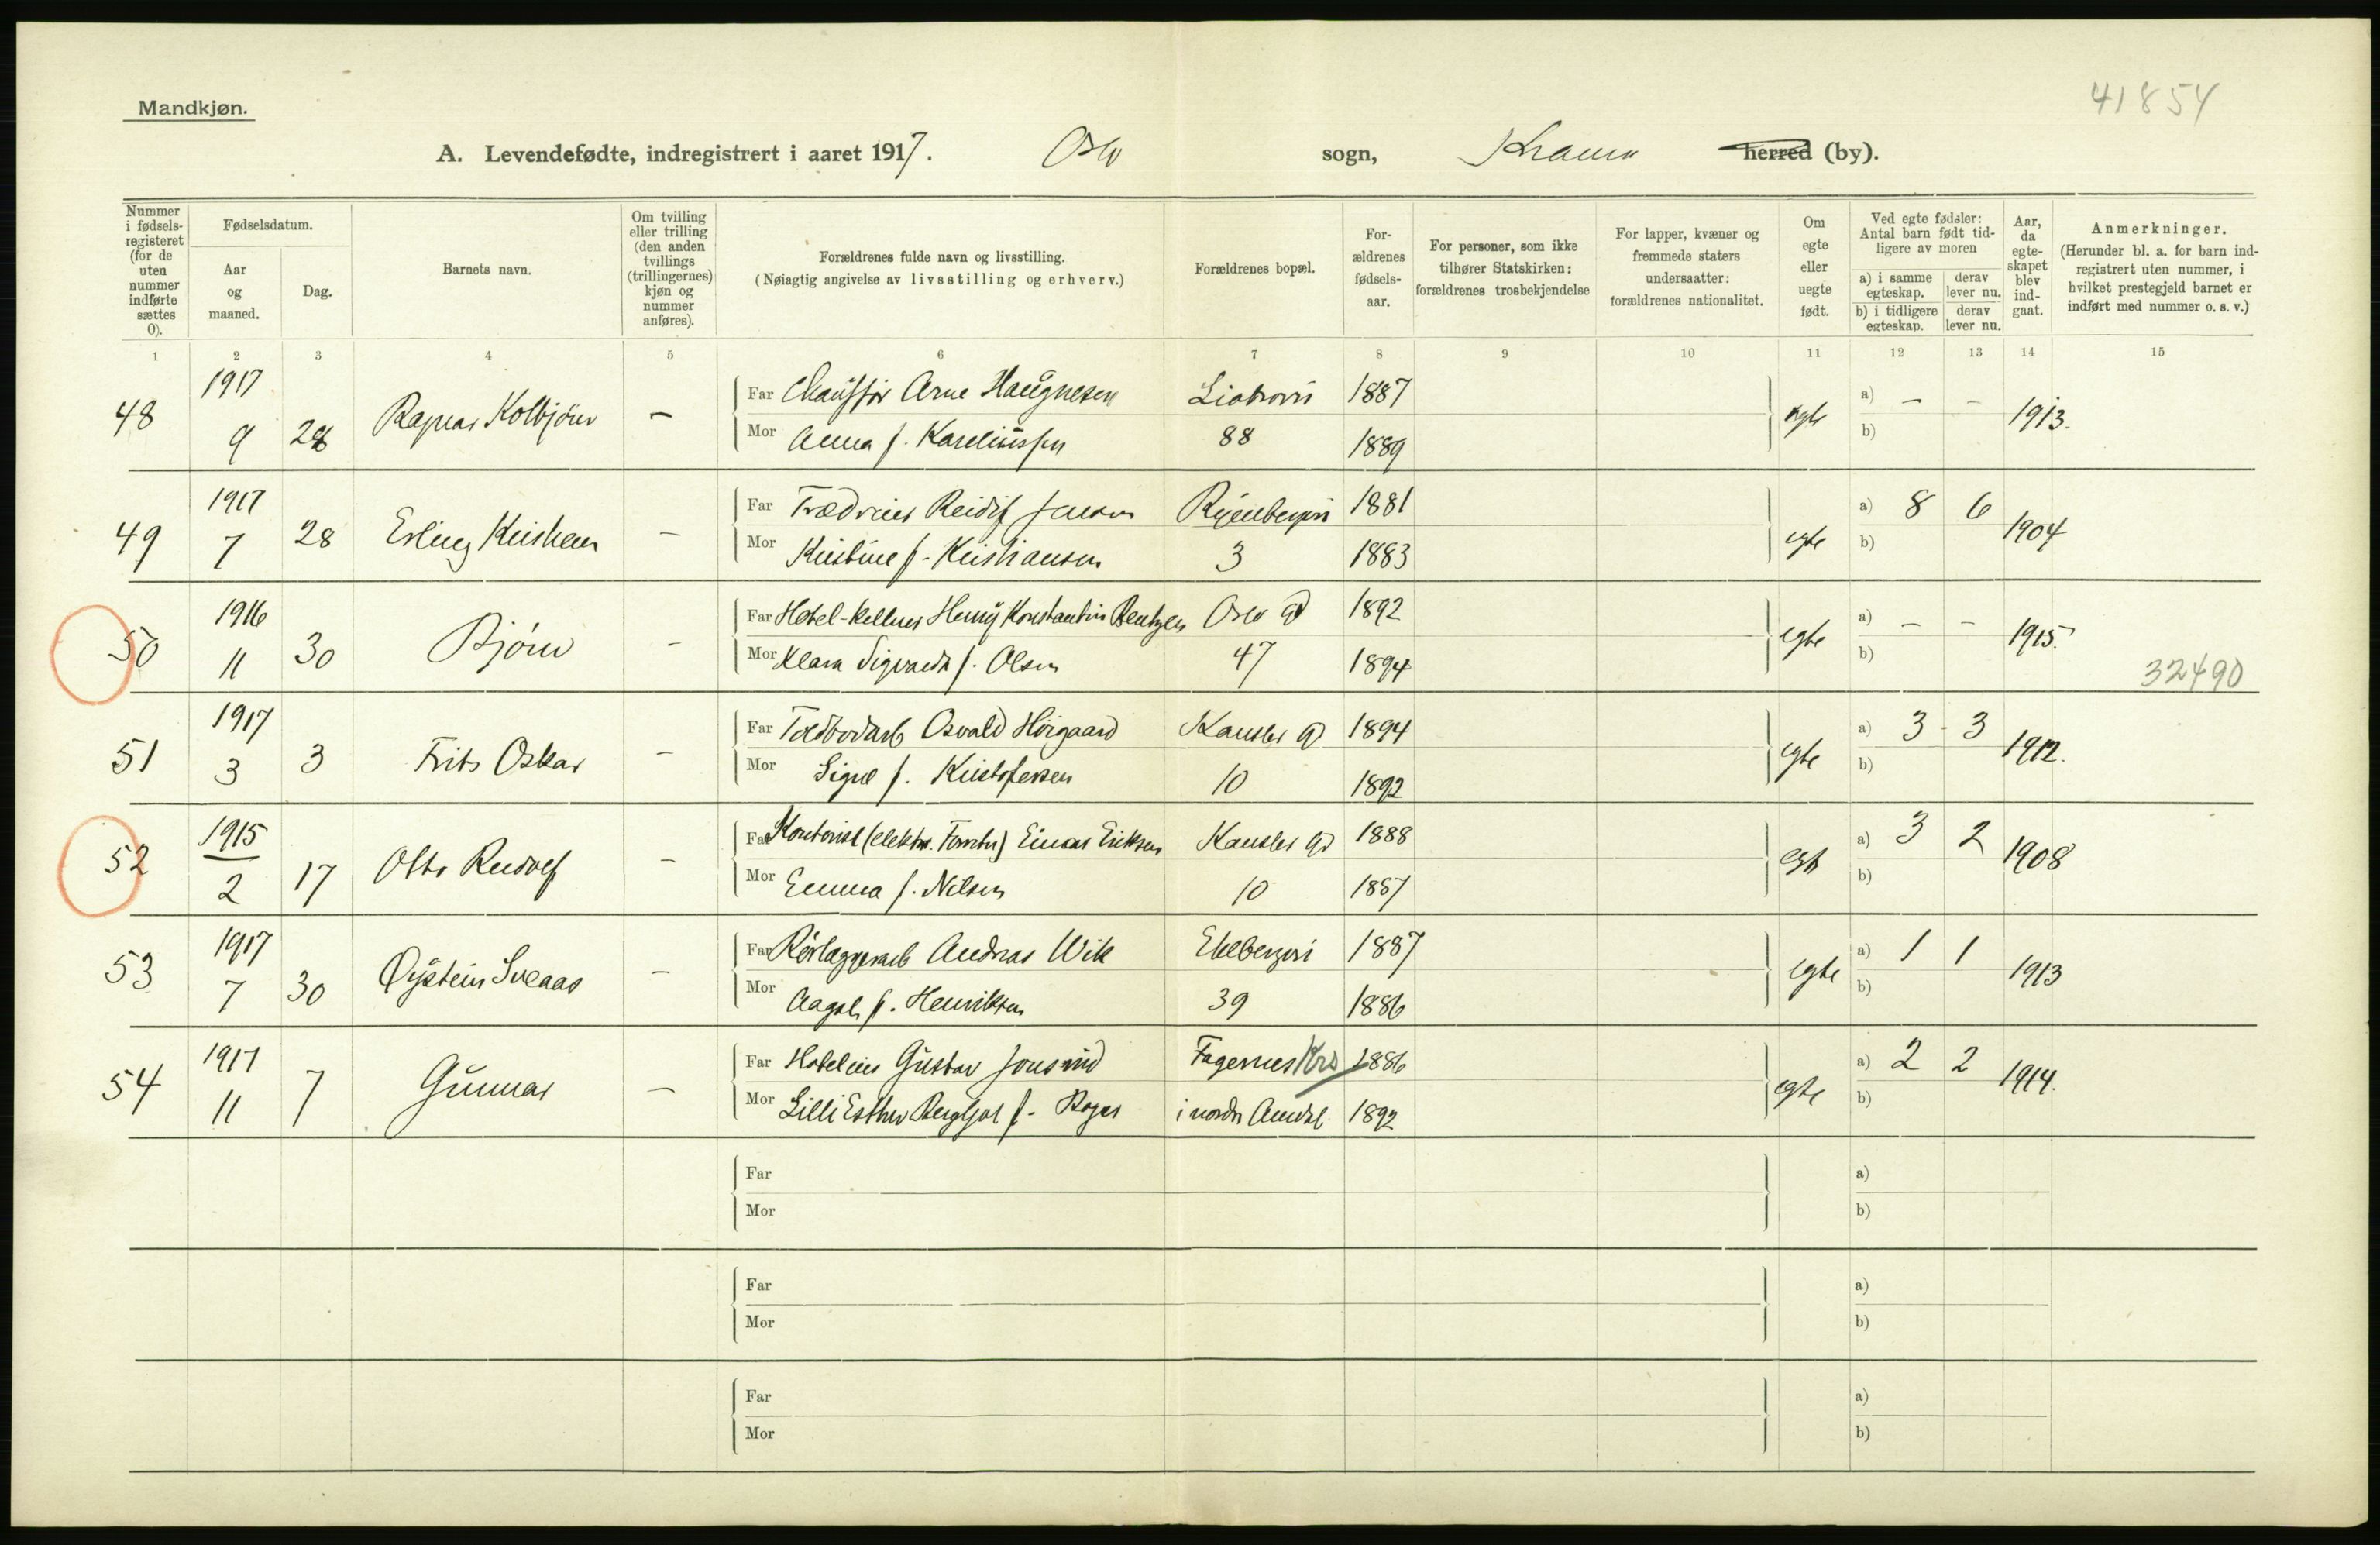 41854
Mandkjøn.
A. Levendefødte, indregistrert i aaret 1917. Oslo sogn, Krania herred (by).
Nummer i fødselsregisteret (for de uten nummer indførte sættes 0).
Fødselsdatum.
Aar og maaned.
Dag.
Barnets navn.
Om tvilling eller trilling (den anden tvillings (trillingernes) kjøn og nummer anføres).
Forældrenes fulde navn og livsstilling.
(Nøiagtig angivelse av livsstilling og erhverv.)
Forældrenes bopæl.
For-ældrenes fødsels-aar.
For personer, som ikke tilhører Statskirken: forældrenes trosbekjendelse
For lapper, kvæner og fremmede staters undersaatter: forældrenes nationalitet.
Om egte eller uegte født.
Ved egte fødsler: Antal barn født tidligere av moren
a) i samme egteskap.
derav lever nu.
b) i tidligere egteskap.
derav lever nu.
Aar, da egteskapet blev indgaat.
Anmerkninger.
(Herunder bl. a. for barn indregistrert uten nummer, i hvilket prestegjeld barnet er indført med nummer o. s. v.)
1 2 3 4 5 6 7 8 9 10 11 12 13 14 15
48 1917 9 28 Ragnar Kolbjörn –
Far Chaufför Arne Haugnesen Liabrovn 1887
Mor Anna f. Kareliussen 88 1889
egte a) – – b) 1913.
49 1917 7 28 Erling –
Far Jensen Ryenbergvn 1881
Mor Kristine f. Kristiansen 3 1883
egte a) 8 6 b) 1904
50 1916 11 30 Bjórn –
Far Hotel-kellner Henry Konstantin Bentzen Oslo gd 1892
Mor Klara f. Olsen 47 1894
egte a) – – b) 1915.
32490
51 1917 3 3 Frits Oskar –
Far Osvald Hörgaard Kansler gd 1894
Mor Signe f. Kristofersen 10 1892
egte a) 3 - 3 b) 1912.
52 1915 2 17 Otto Rudolf –
Far Kontorist Einar Eriksen Kansler gd 1888
Mor Emma f. Nilsen 10 1887
egte a) 3 2 b) 1908
53 1917 7 30 Øystein Sveaas –
Far Andreas Wik Ekebergvn 1887
Mor Aagot f. Henriksen 39 1886
egte a) 1 1 b) 1913
54 1917 11 7 Gunnar –
Far Gustav Fagernes 1886
Mor Lilli Esther Bergljot f. i nordr Aurdal 1892
egte a) 2 2 b) 1914.
Far a)
Mor b)
Far a)
Mor b)
Far a)
Mor b)